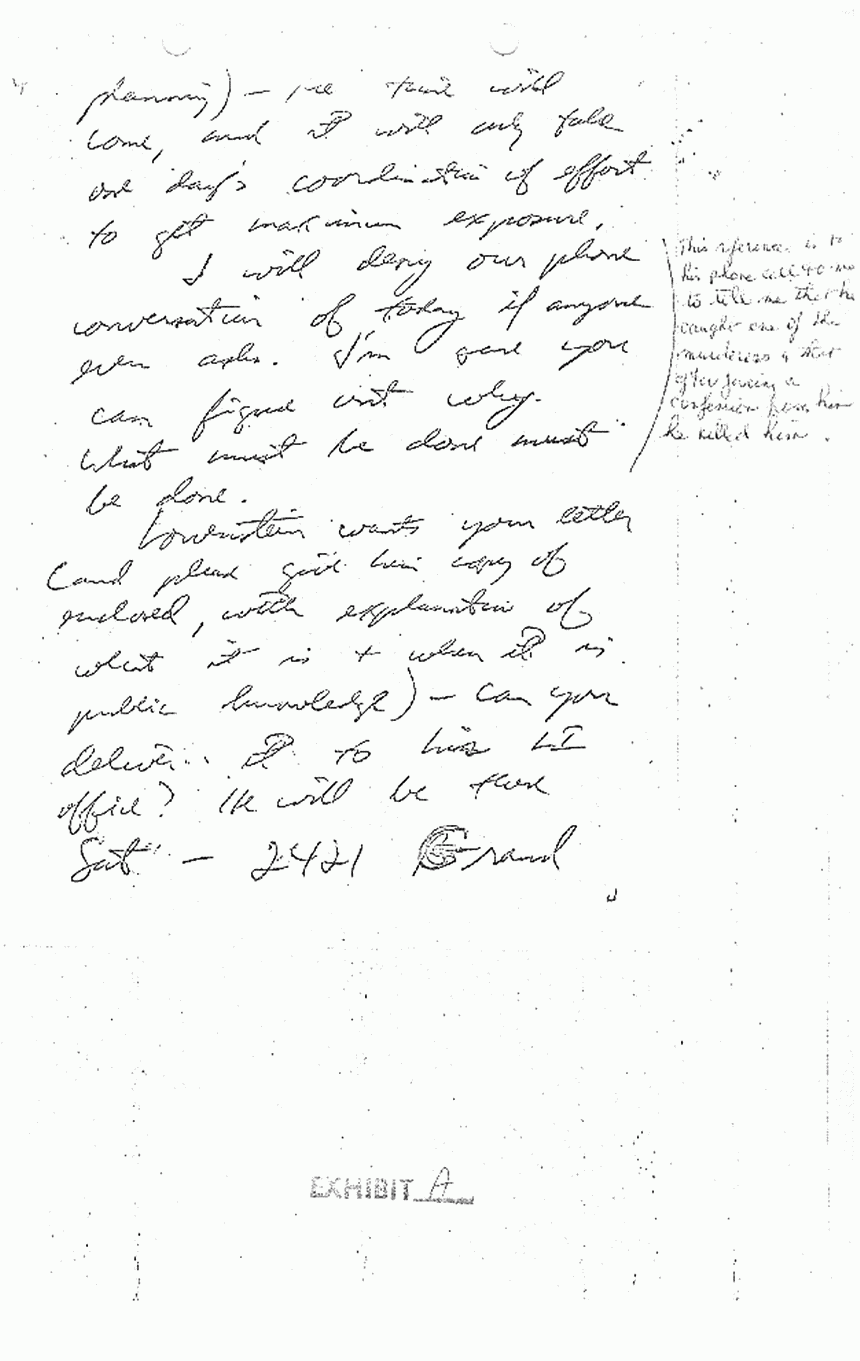 planning) — the time will
come, and it will only take
one day's coordination of effort
to get maximum exposure.
I will deny our phone
conversation of today if anyone
ever asks. I'm sure you
can figure out why.
What must be done must
be done.
Lowenstein wants your letter
(and please give him copy of
enclosed, with explanation of
what it is + when it is
public knowledge) — Can you
deliver it to his LI
office? He will be there
Sat — 2421 Grand
This reference is to
his phone call to me
to tell me that he
caught one of the
murderers & that
after forcing a
confession from him
he killed him.
EXHIBIT A